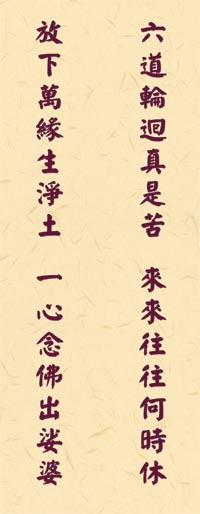 六道輪迴真是苦 來來往往何時休
放下萬緣生淨土 一心念佛出娑婆